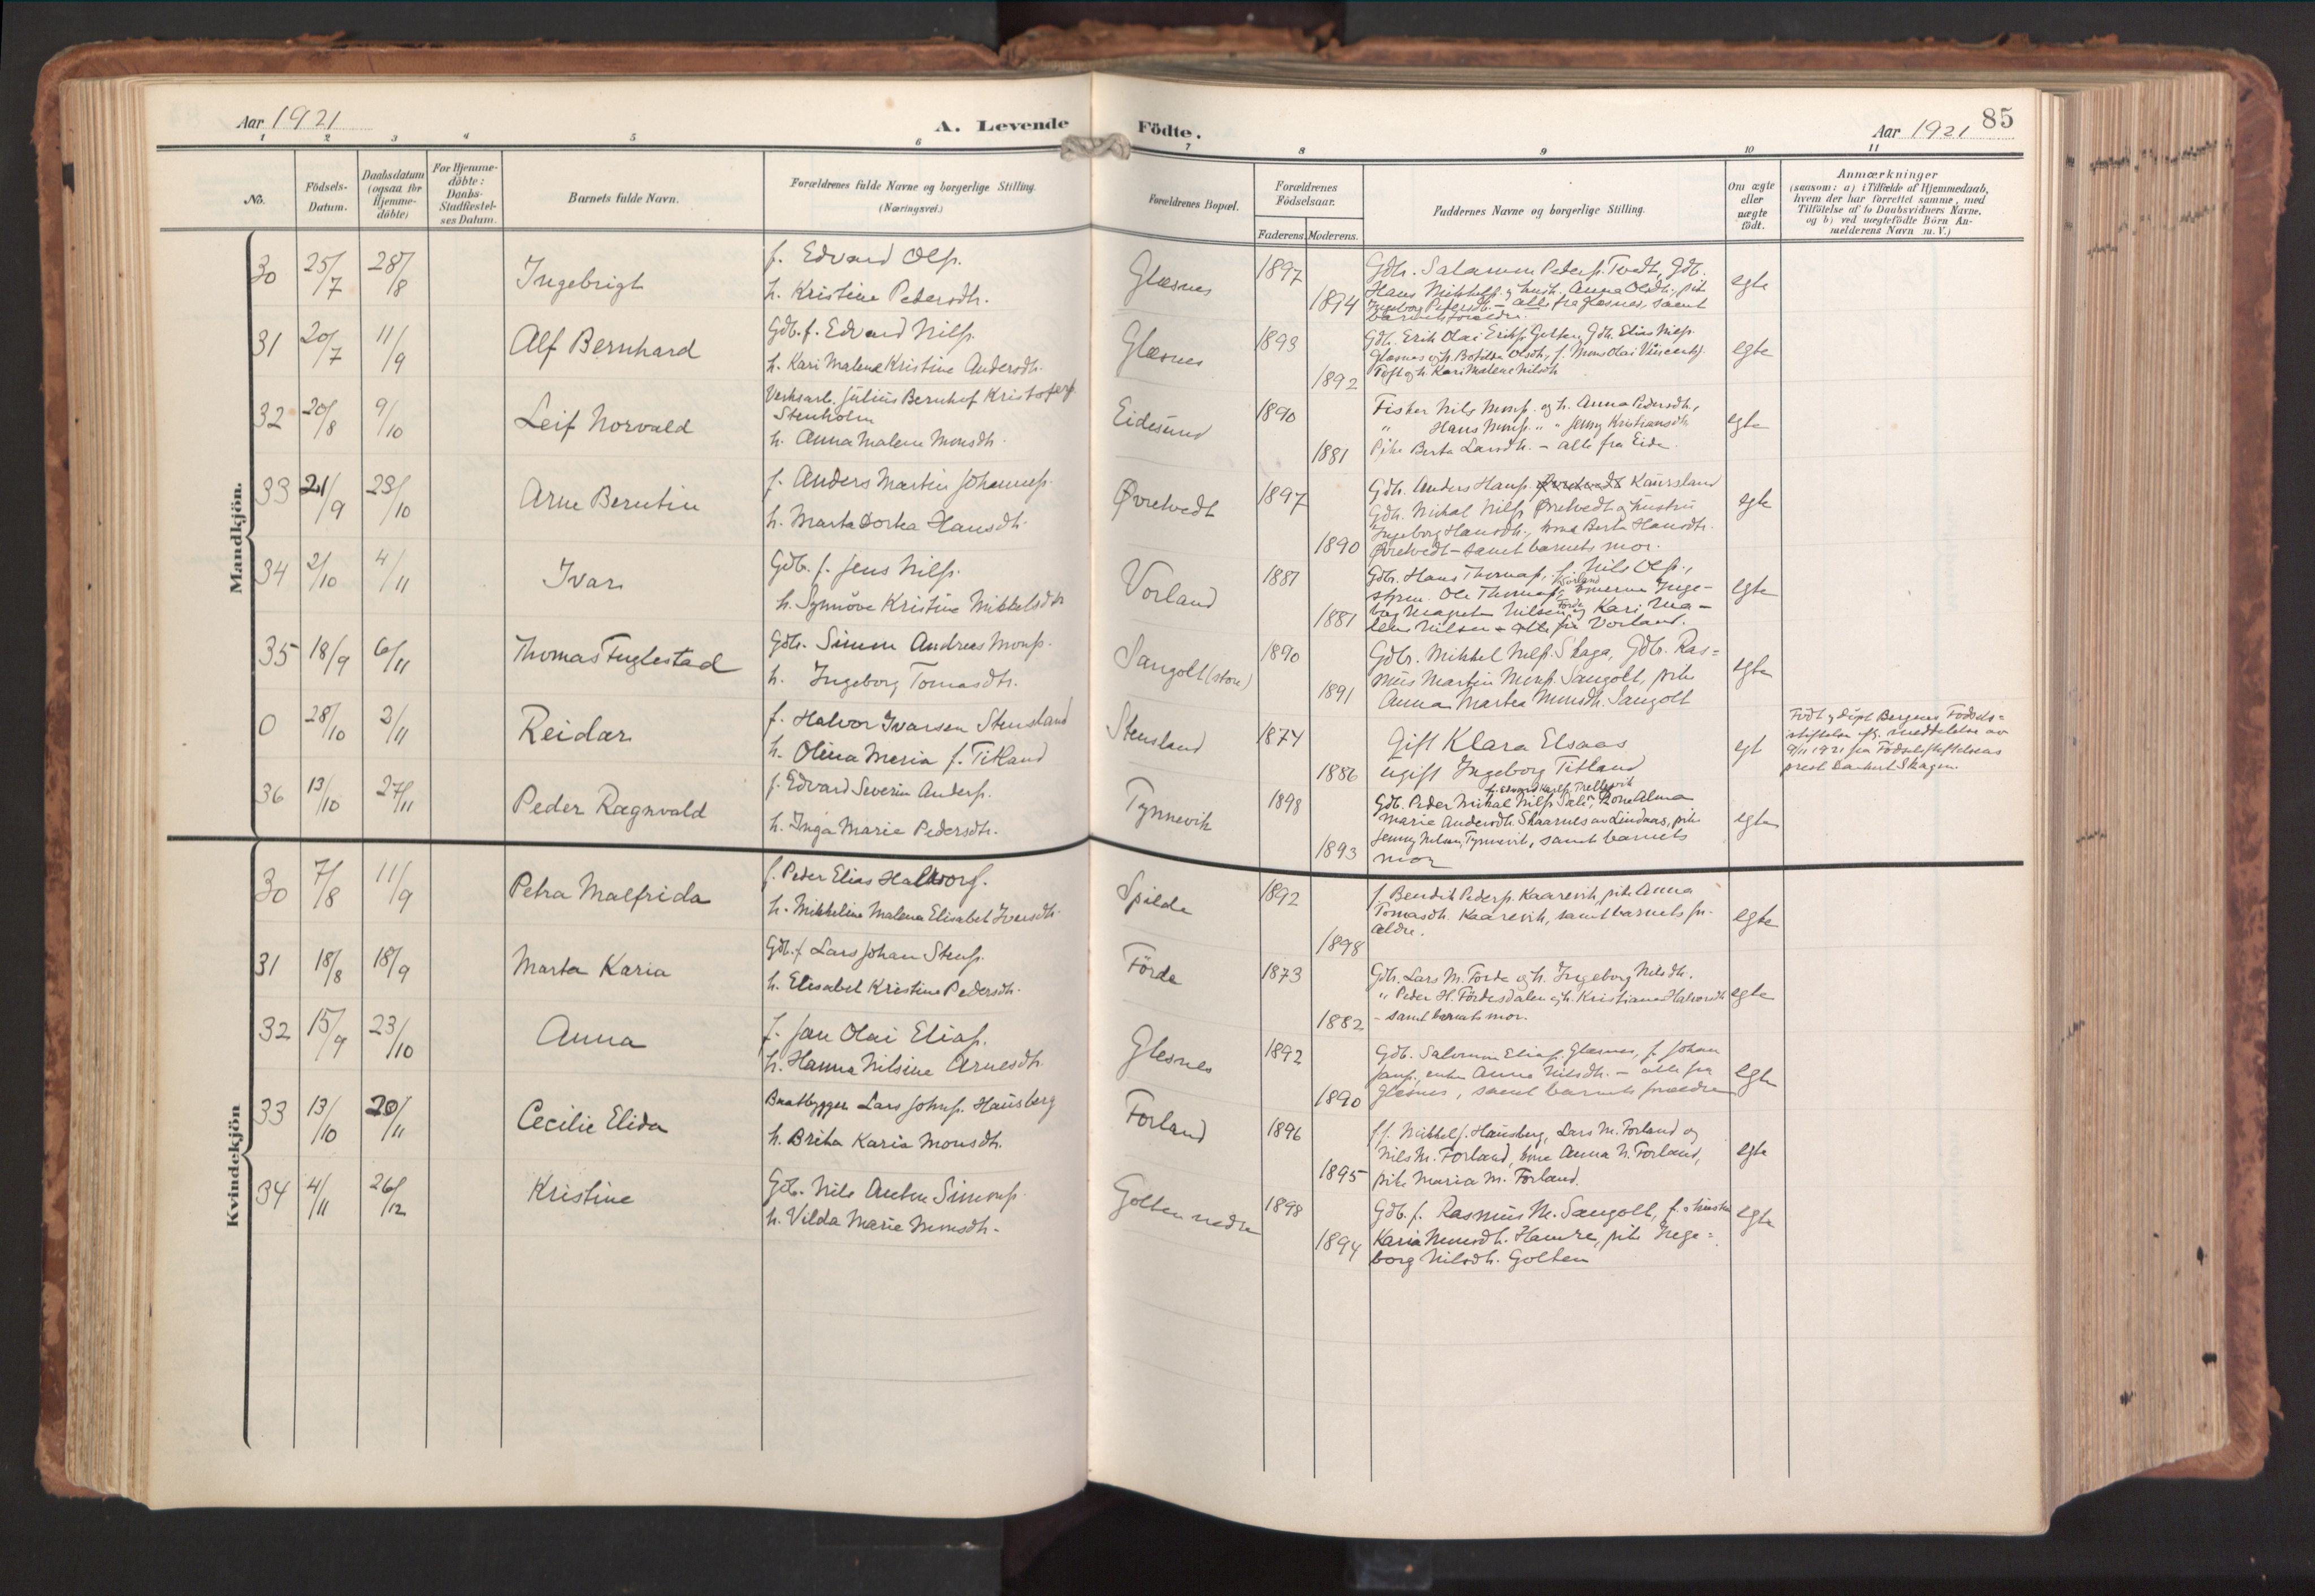 Aar 1921
A. Levende
Födte.
Aar 1921
85
1 2 3 4 5 6 7 8 9 10 11
No.
Födsels-
Datum.
Daabsdatum
(ogsaa for
Hjemme-
döbte)
For Hjemme-
döbte:
Daabs-
Stadfæstel-
ses Datum.
Barnets fulde Navn.
Forældrenes fulde Navne og borgerlige Stilling.
(Næringsvei.)
Forældrenes Bopæl.
Forældrenes
Födselsaar.
Faderens. Moderens.
Faddernes Navne og borgerlige Stilling.
Om ægte
eller
uægte
födt.
Anmærkninger
(saasom: a) i Tilfælde af Hjemmedaab,
hvem der har forrettet samme, med
Tilföielse af to Daabsvidners Navne,
og b) ved uægtefödte Börn An-
melderens Navn m. V.)
Mandkjön.
30 25/7 28/8 Ingebrigt
f. Edvard Olss.
h. Kristine Pedersdtr.
Glæsnes 1897
1894
Gdbr. Salamon Peders. Tvedt, Gdb.
Hans Mikkels. og hustr. Anna Olsdtr., pike
Ingeborg Pedersdtr. - alle fra Glæsnes, samt
barnets forældre.
egte
31 20/7 11/9 Alf Bernhard
Gdb. f. Edvard Nilss.
h. Kari Malene Kristine Andersdtr.
Glæsnes 1893
1892
Gdb. Erik Olai Eriks. Golten, Gdb. Elias Nilss.
Glæsnes og h. Botilda Olsdtr., f. Mons Olai Vincents.
Toft og h. Kari Malene Nilsdtr
egte
32 20/8 9/10 Leif Norvald
Verksarb. Julius Bernhof Kristofers.
Stenholm
h. Anna Malene Monsdtr.
Eidesund 1890
1881
Fisker Nils Monss. og h. Anna Pedersdtr.,
" Hans Monss. " " Jenny Kristiansdtr
Pike Berta Larsdtr. - alle fra Eide.
egte
33 21/9 23/10 Arne Berntin
f. Anders Martin Johanness.
h. Marta Dortea Hansdtr.
Øvretvedt 1897
1890
Gdb. Anders Hanss. Øvretvedt Kaursland
Gdb. Mikal Nilss. Øvretvedt og hustru
Ingeborg Hansdtr., kone Berta Hansdtr.
Øvretvedt - samt barnets mor.
egte
34 2/10 4/11 Ivar
Gdb. f. Jens Nilss.
h. Synnöve Kristine Mikkelsdtr
Vorland 1881
1881
Gdb. Hans Thomass., f. Nils Olss.,
Ole Thomass., Inge-
borg Nilsen og Kari Ma-
lene Nilsen - alle fra Vorland.
egte
35 18/9 6/11 Thomas Fuglestad
Gdb. Simon Andreas Monss.
h. Ingeborg Tomasdtr.
Sangolt (store) 1890
1891
Gdbr. Mikkel Nilss. Skaga, Gdbr. Ras=
mus Martin Monss. Sangolt, pike
Anna Martea Monsdtr. Sangolt
egte
0 28/10 2/11 Reidar
f. Halvor Ivarsen Stensland
h. Olina Maria f. Titland
Stensland 1874
1886
Gift Klara Elsaas
Ugift Ingeborg Titland
egt
Födt og döpt Bergens Födsels=
stiftelse eft. meddelelse av
9/11 1921 fra Födselsstiftelsens
prest Skagen.
36 13/10 27/11 Peder Ragnvald
f. Edvard Severin Anderss.
h. Inga Marie Pedersdtr.
Tynnevik 1898
1893
Gdb. Peder Mikal Nilss. Sæle, Kone Alma
Marie Andersdtr. Skaarnes av Lindaas, pike
Jenny Nilsen, Tynnevik, samt barnets
mor
egte
Kvindekjön
30 7/8 11/9 Petra Malfrida
f. Peder Elias Halvors.
h. Mikkeline Malena Elisabet Iversdtr.
Spilde 1892
1898
f. Bendik Peders. Kaarevik, pike Anna
Tomasdtr. Kaarevik, samt barnets for-
ældre.
egte
31 18/8 18/9 Marta Karia
Gdb. f. Lars Johan Stenss.
h. Elisabet Kristine Pedersdtr.
Förde 1873
1882
Gdb. Lars M. Förde og h. Ingeborg Nilsdtr.
" Peder H. Fördesdalen og h. Kristiane Halvorsdtr
- samt barnets mor.
egte
32 15/9 23/10 Anna
f. Jan Olai Eliass.
h. Hanna Nilsine Arnesdtr.
Glesnes 1892
1890
Gdb. Salomon Eliass. Glæsnes, f. Johan
Janss., enke Anna Nilsdtr. - alle fra
Glesnes, samt barnets forældre
egte
33 13/10 20/11 Cecilie Elida
Baatbygger Lars Johns. Hausberg
h. Brita Karia Monsdtr.
Forland 1896
1895
ff. Mikkel J. Hausberg, Lars M. Forland og
Nils M. Forland, kone Anna N. Forland,
pike Maria M. Forland.
egte
34 4/11 26/12 Kristine
Gdb. Nils Anton Simonss.
h. Vilda Marie Monsdtr.
Golten nedre 1898
1894
Gdb. f. Rasmus M. Sangolt, f. s hustru
Karia Monsdtr. Hamre, pike Inge=
borg Nilsdtr. Golten
egte